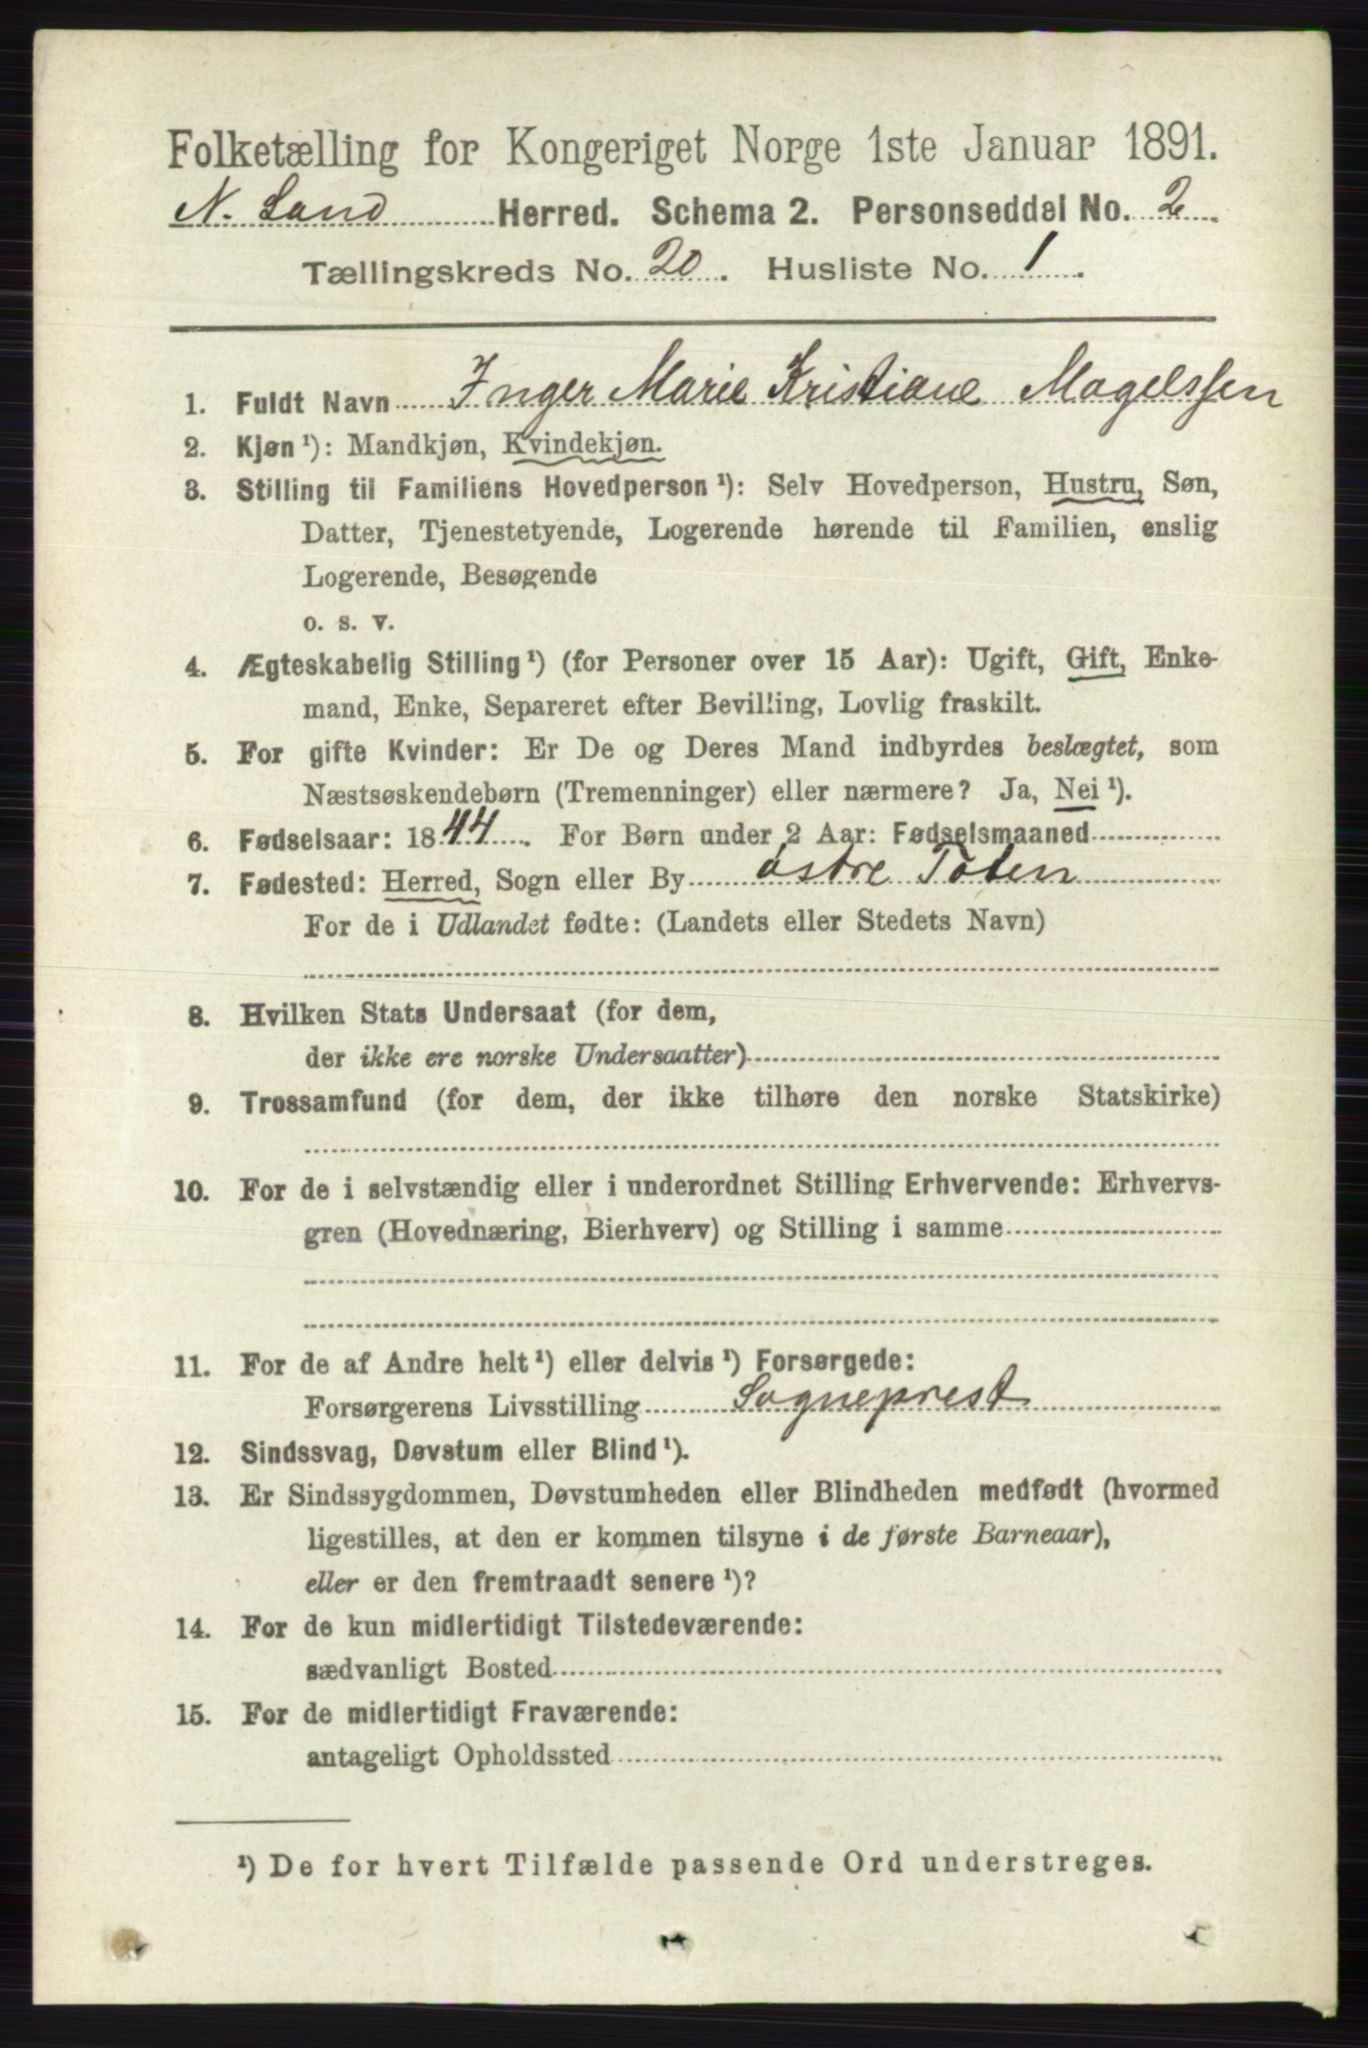 Folketælling for Kongeriget Norge 1ste Januar 1891.
N. Land Herred. Schema 2. Personseddel No. 2.
Tællingskreds No. 20. Husliste No. 1.
1. Fuldt Navn Inger Marie Kristiane Magelssen
2. Kjøn¹): Mandkjøn, Kvindekjøn.
3. Stilling til Familiens Hovedperson¹): Selv Hovedperson, Hustru, Søn,
Datter, Tjenestetyende, Logerende hørende til Familien, enslig
Logerende, Besøgende
o. s. v.
4. Ægteskabelig Stilling¹) (for Personer over 15 Aar): Ugift, Gift, Enke-
mand, Enke, Separeret efter Bevilling, Lovlig fraskilt.
5. For gifte Kvinder: Er De og Deres Mand indbyrdes beslægtet, som
Næstsøskendebørn (Tremenninger) eller nærmere? Ja, Nei¹).
6. Fødselsaar: 1844. For Børn under 2 Aar: Fødselsmaaned
7. Fødested: Herred, Sogn eller By østre Toten
For de i Udlandet fødte: (Landets eller Stedets Navn)
8. Hvilken Stats Undersaat (for dem,
der ikke ere norske Undersaatter)
9. Trossamfund (for dem, der ikke tilhøre den norske Statskirke)
10. For de i selvstændig eller i underordnet Stilling Erhvervende: Erhvervs-
gren (Hovednæring, Bierhverv) og Stilling i samme
11. For de af Andre helt¹) eller delvis¹) Forsørgede:
Forsørgerens Livsstilling Sogneprest
12. Sindssvag, Døvstum eller Blind¹).
13. Er Sindssygdommen, Døvstumheden eller Blindheden medfødt (hvormed
ligestilles, at den er kommen tilsyne i de første Barneaar),
eller er den fremtraadt senere¹)?
14. For de kun midlertidigt Tilstedeværende:
sædvanligt Bosted
15. For de midlertidigt Fraværende:
antageligt Opholdssted
¹) De for hvert Tilfælde passende Ord understreges.